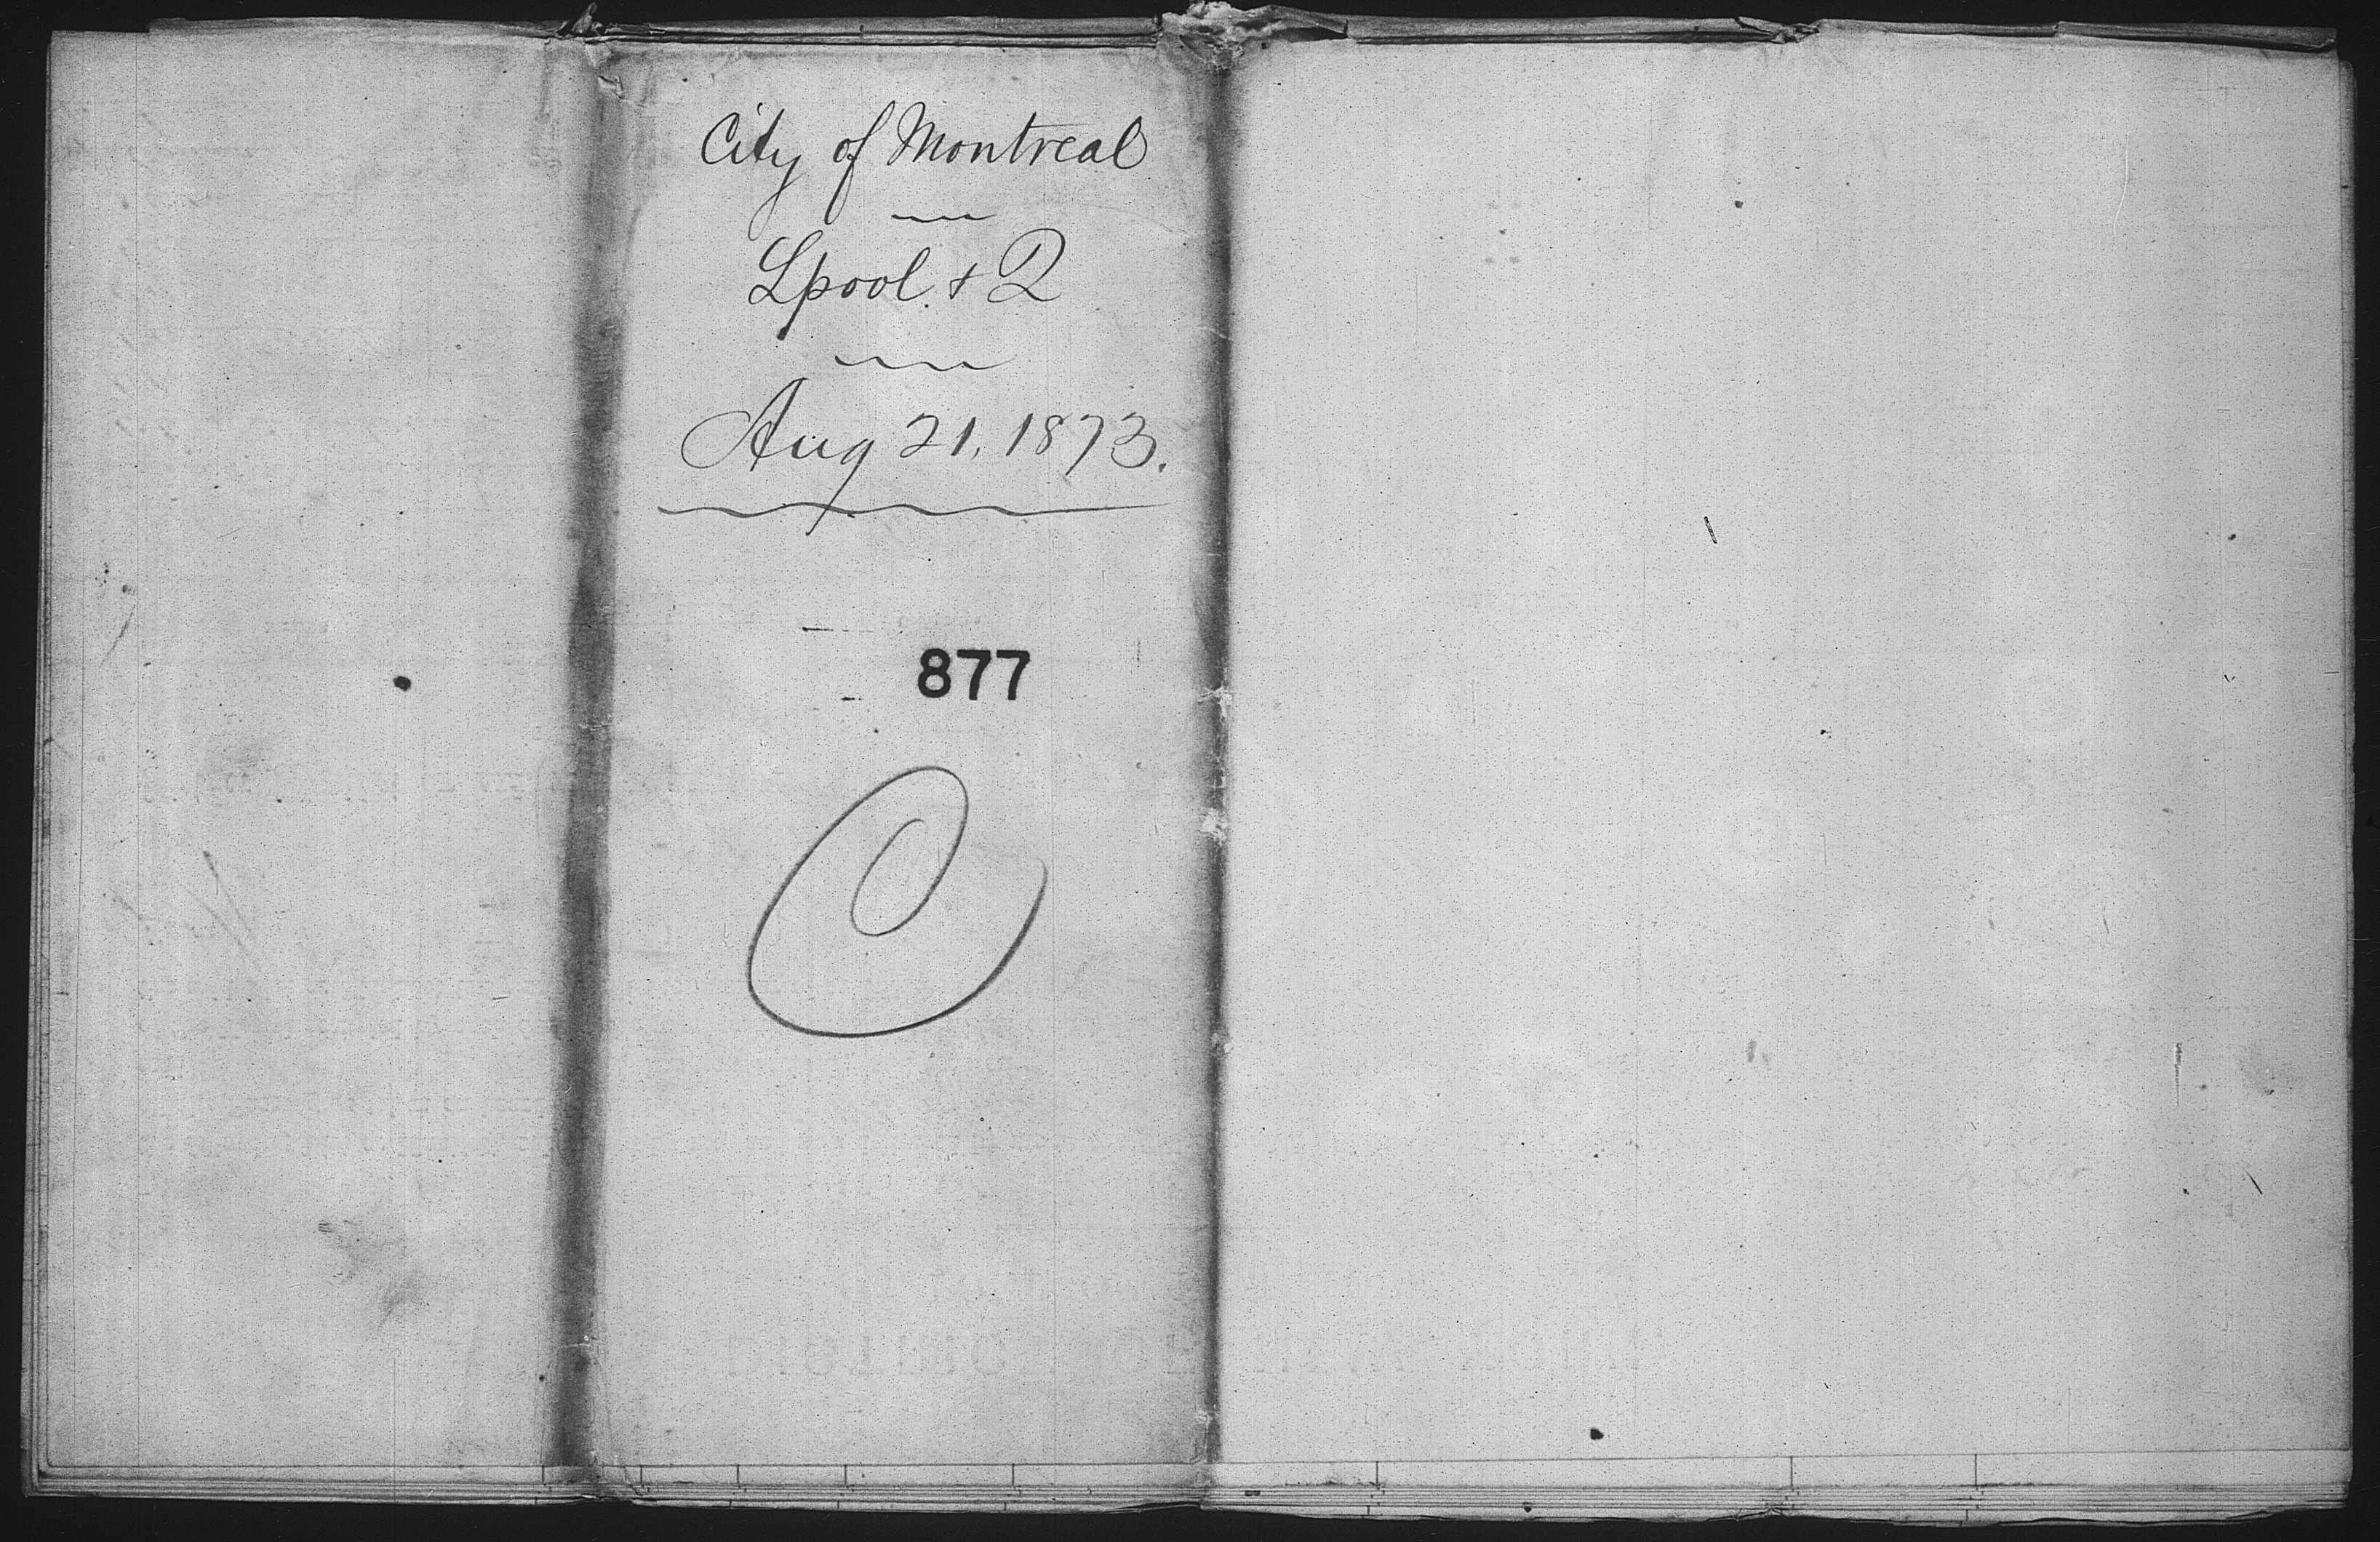 City of Montreal
Lpool. & Q
Aug 21, 1873.
877
C